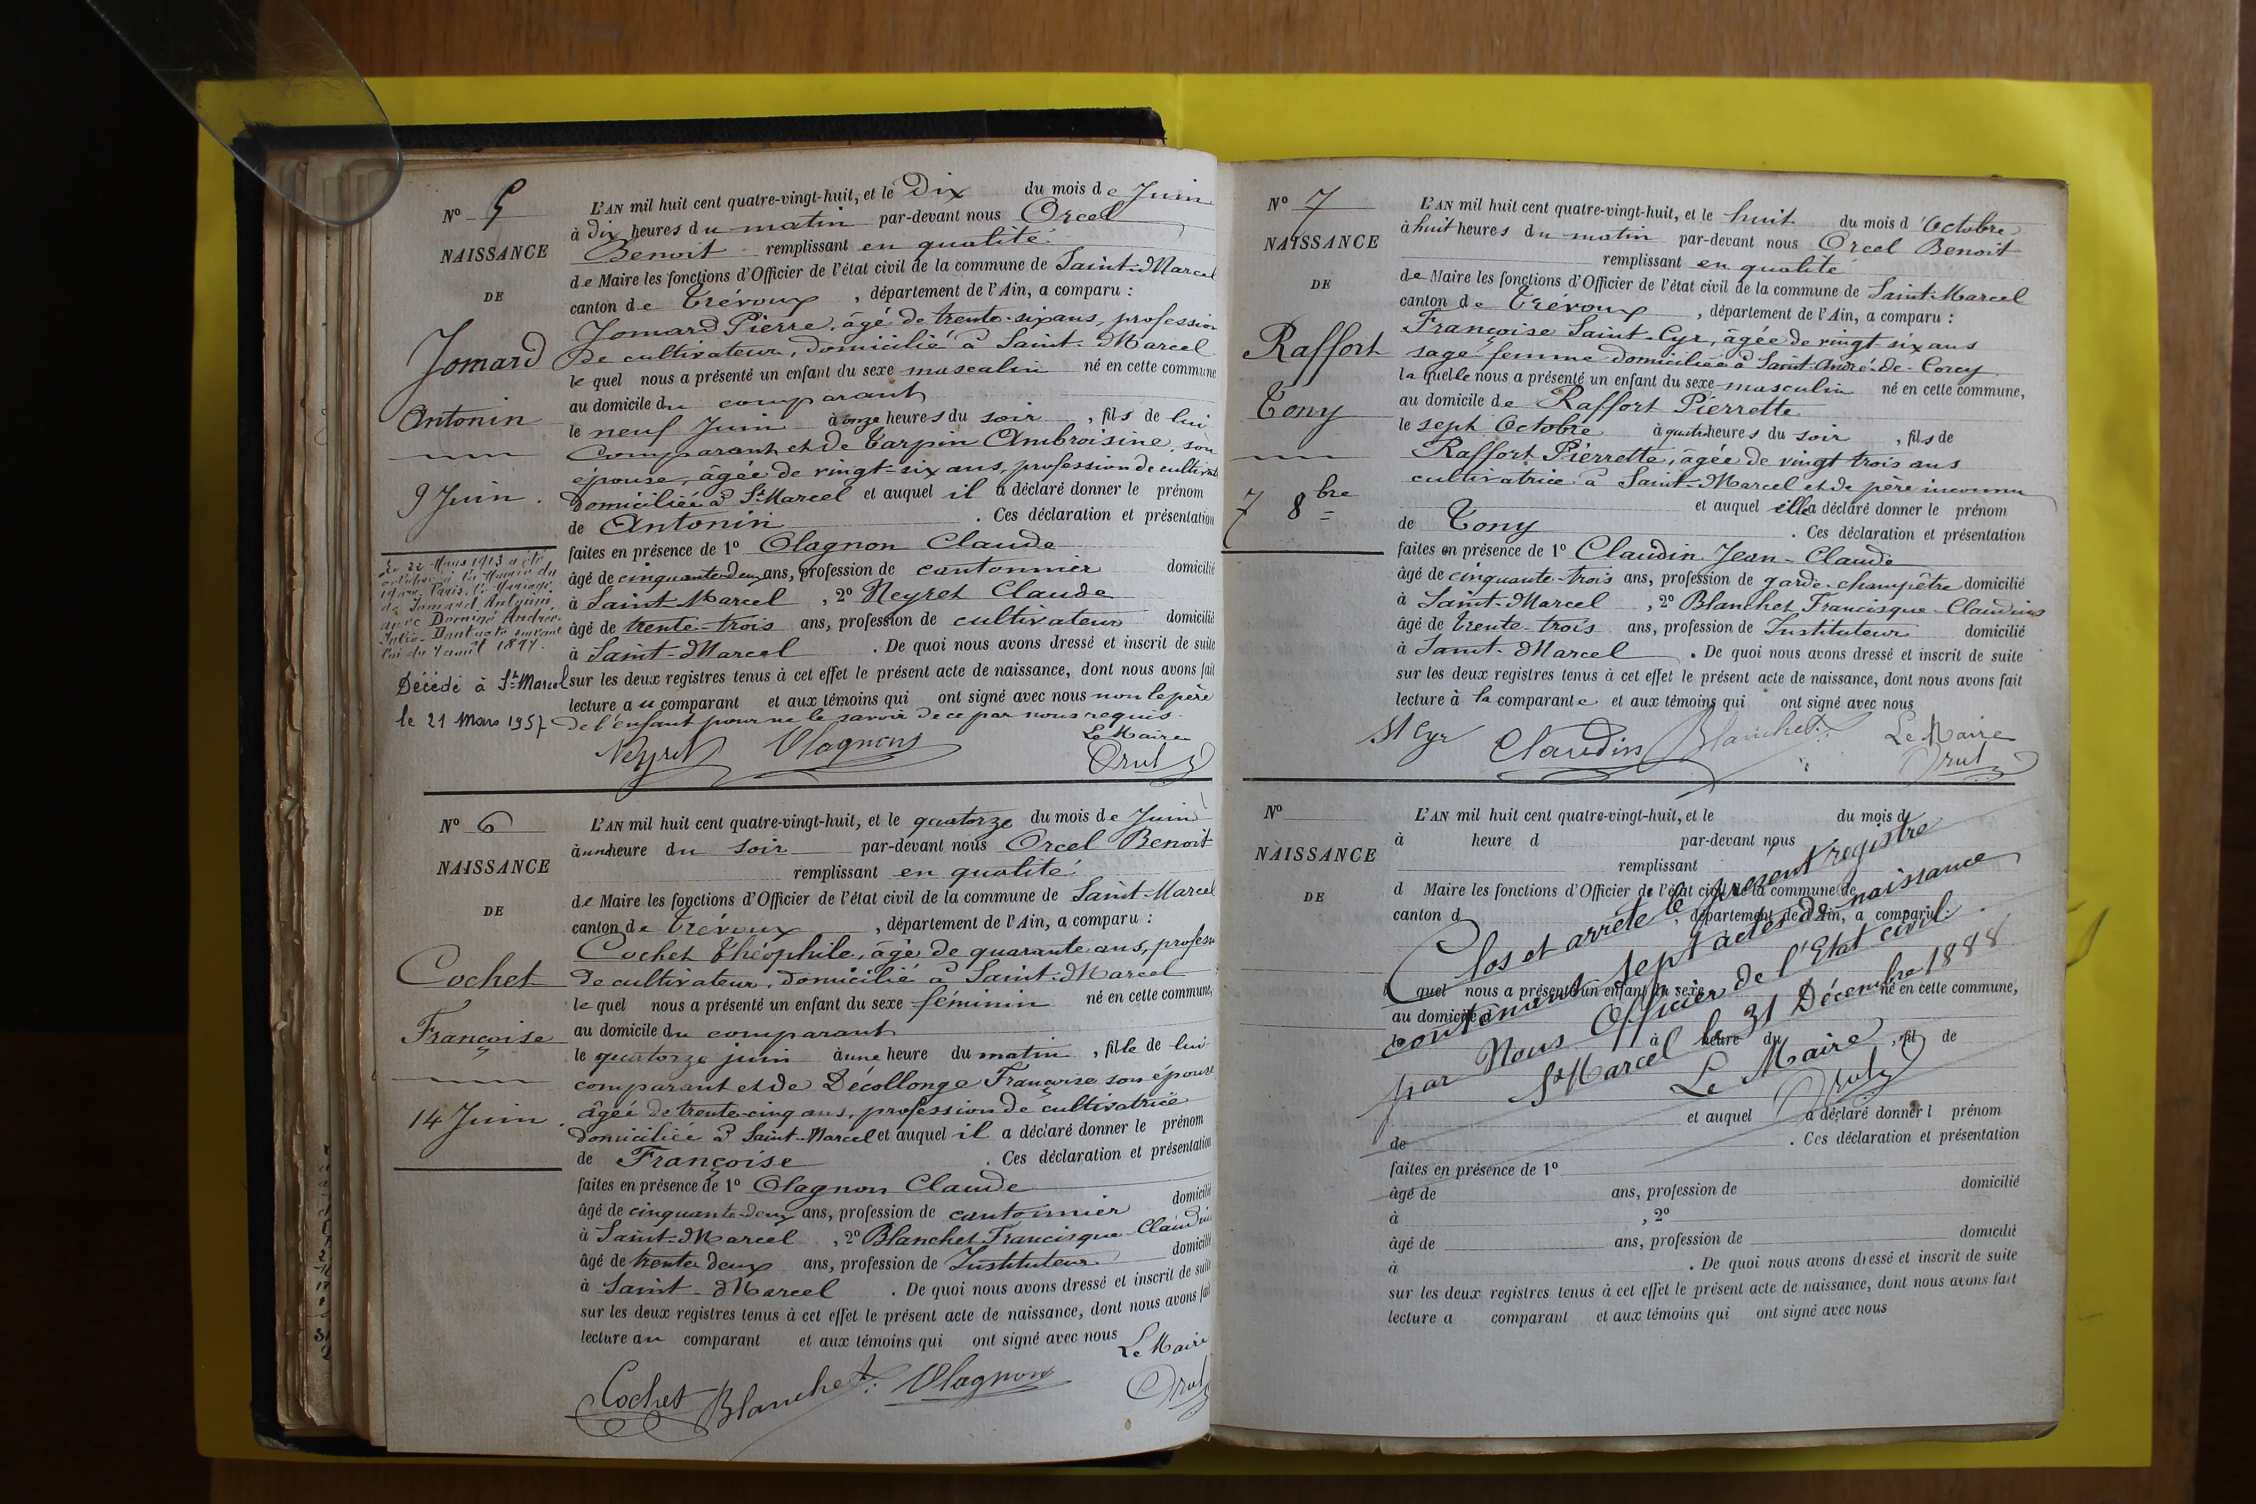 N° 5
NAISSANCE
DE
Jomard
Antonin
9 Juin.
Le 22 Mars 1913 a été
célébré à la Mairie du
Paris, le Mariage
de Jomard Antonin
avec Andrée
Julie
loi du 7 avril 1897.
Décédé à St Marcel
le 21 Mars 1957
L'AN mil huit cent quatre-vingt-huit, et le Dix du mois de Juin
à dix heures du matin par-devant nous Orcel
Benoit remplissant en qualité
de Maire les fonctions d'Officier de l'état civil de la commune de Saint-Marcel
canton de Trévoux, département de l'Ain, a comparu :
Jomard Pierre, âgé de trente-six ans, profession
de cultivateur, domicilié à Saint-Marcel
lequel nous a présenté un enfant du sexe masculin né en cette commune
au domicile du comparant
le neuf Juin à onze heures du soir, fils de lui
comparant et de Tarpin Ambroisine, son
épouse, âgée de vingt-six ans, profession de cultivatrice
domiciliée à St Marcel et auquel il a déclaré donner le prénom
de Antonin. Ces déclaration et présentation
faites en présence de 1° Olagnon Claude
âgé de cinquante-deux ans, profession de cantonnier domicilié
à Saint Marcel, 2° Neyret Claude
âgé de trente-trois ans, profession de cultivateur domicilié
à Saint-Marcel. De quoi nous avons dressé et inscrit de suite
sur les deux registres tenus à cet effet le présent acte de naissance, dont nous avons fait
lecture au comparant et aux témoins qui ont signé avec nous non le père
de l'enfant pour ne le savoir de ce par nous requis.
Neyret Olagnon Le Maire
Orcel
N° 6
NAISSANCE
DE
Cochet
Françoise
14 Juin.
L'AN mil huit cent quatre-vingt-huit, et le quatorze du mois de Juin
à une heure du soir par-devant nous Orcel Benoit
remplissant en qualité
de Maire les fonctions d'Officier de l'état civil de la commune de Saint-Marcel
canton de Trévoux, département de l'Ain, a comparu :
Cochet Théophile, âgé de quarante ans, profession
de cultivateur, domicilié à Saint-Marcel
lequel nous a présenté un enfant du sexe féminin né en cette commune,
au domicile du comparant
le quatorze juin à une heure du matin, fille de lui
comparant et de Décollonge Françoise son épouse
âgée de trente-cinq ans, profession de cultivatrice
domiciliée à Saint-Marcel et auquel il a déclaré donner le prénom
de Françoise. Ces déclaration et présentation
faites en présence de 1° Olagnon Claude
âgé de cinquante-deux ans, profession de cantonnier domicilié
à Saint-Marcel, 2° Blanchet Francisque-Claudius
âgé de trente deux ans, profession de Instituteur domicilié
à Saint-Marcel. De quoi nous avons dressé et inscrit de suite
sur les deux registres tenus à cet effet le présent acte de naissance, dont nous avons fait
lecture au comparant et aux témoins qui ont signé avec nous
Le Maire
Cochet Blanchet Olagnon Orcel
N° 7
NAISSANCE
DE
Raffort
Tony
7 8bre
L'AN mil huit cent quatre-vingt-huit, et le huit du mois d'Octobre
à huit heures du matin par-devant nous Orcel Benoit
remplissant en qualité
de Maire les fonctions d'Officier de l'état civil de la commune de Saint-Marcel
canton de Trévoux, département de l'Ain, a comparu :
Françoise Saint-Cyr, âgée de vingt-six ans
sage-femme domiciliée à Saint-André-de-Corcy
laquelle nous a présenté un enfant du sexe masculin né en cette commune,
au domicile de Raffort Pierrette
le sept Octobre à quatre heures du soir, fils de
Raffort Pierrette, âgée de vingt trois ans
cultivatrice à Saint-Marcel et de père inconnu
et auquel elle a déclaré donner le prénom
de Tony. Ces déclaration et présentation
faites en présence de 1° Claudin Jean-Claude
âgé de cinquante-trois ans, profession de garde-champêtre domicilié
à Saint-Marcel, 2° Blanchet Francisque-Claudius
âgé de trente-trois ans, profession de Instituteur domicilié
à Saint-Marcel. De quoi nous avons dressé et inscrit de suite
sur les deux registres tenus à cet effet le présent acte de naissance, dont nous avons fait
lecture à la comparante et aux témoins qui ont signé avec nous
St Cyr Claudin Blanchet Le Maire
Orcel
N°
NAISSANCE
DE
L'AN mil huit cent quatre-vingt-huit, et le du mois d
à heure d par-devant nous
remplissant
d Maire les fonctions d'Officier de l'état civil de la commune de
canton d, département de l'Ain, a comparu :
Clos et arrêté le présent registre
contenant sept actes de naissance
par Nous Officier de l'Etat civil.
St Marcel le 31 Décembre 1888
Le Maire
Orcel
l quel nous a présenté un enfant du sexe né en cette commune,
au domicile d
le à heure du, fil de
et auquel a déclaré donner l prénom
de. Ces déclaration et présentation
faites en présence de 1°
âgé de ans, profession de domicilié
à, 2°
âgé de ans, profession de domicilié
à. De quoi nous avons dressé et inscrit de suite
sur les deux registres tenus à cet effet le présent acte de naissance, dont nous avons fait
lecture a comparant et aux témoins qui ont signé avec nous